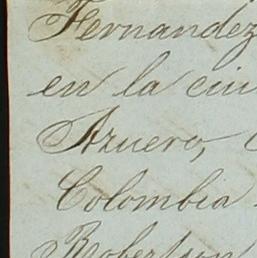 Fernandez
en la ciu
Azuero,
Colombia
Robertson